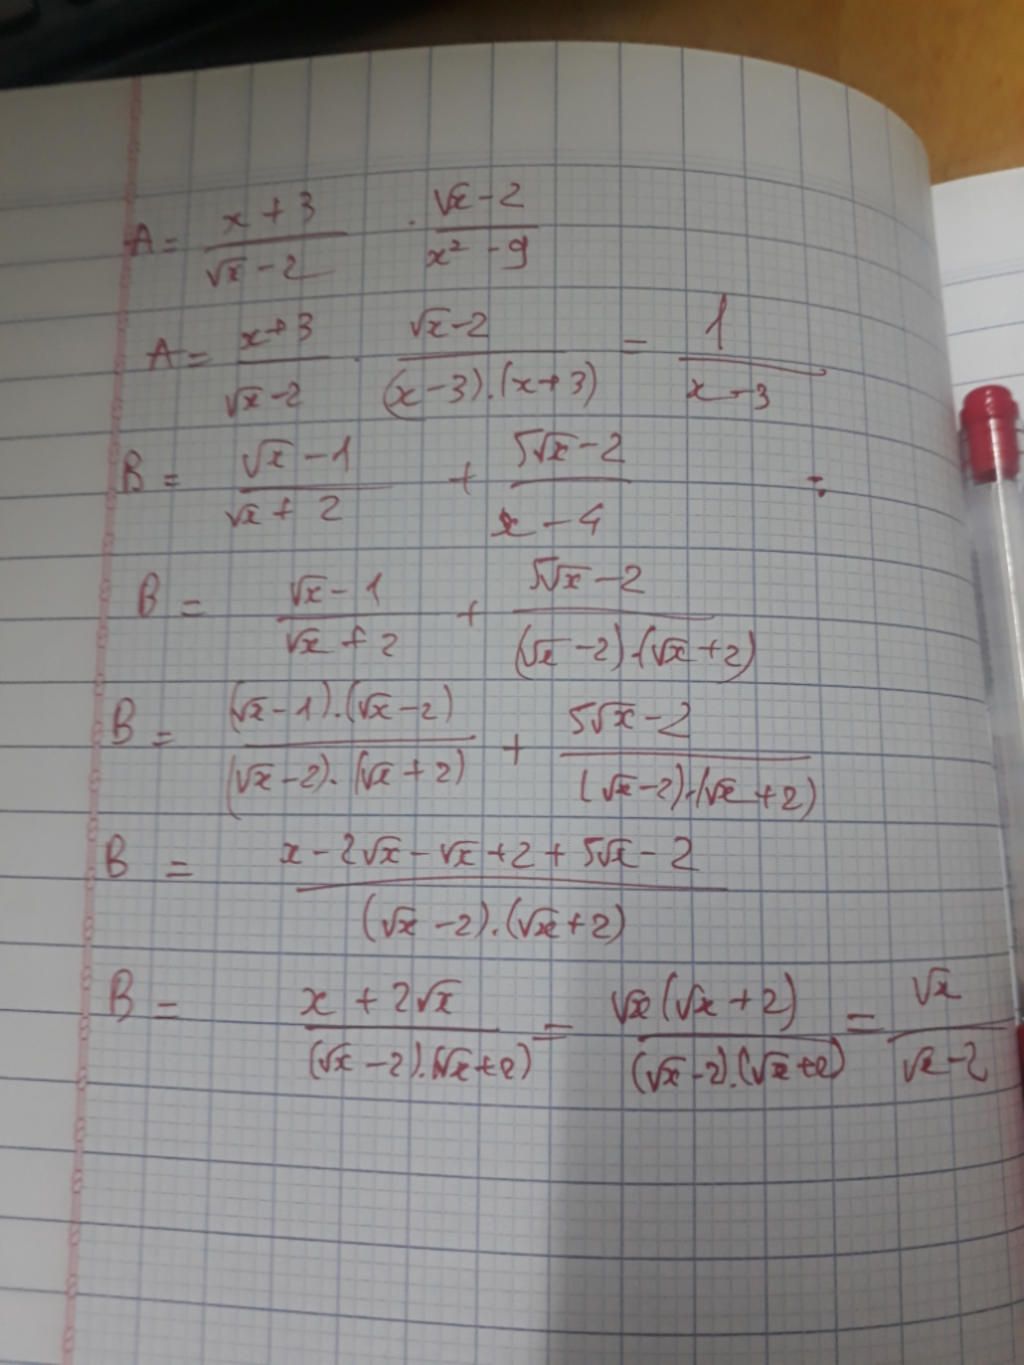 A = \frac{x+3}{\sqrt{x}-2} . \frac{\sqrt{x}-2}{x^2-9}
A = \frac{x+3}{\sqrt{x}-2} . \frac{\sqrt{x}-2}{(x-3).(x+3)} = \frac{1}{x-3}
B = \frac{\sqrt{x}-1}{\sqrt{x}+2} + \frac{5\sqrt{x}-2}{x-4}
B = \frac{\sqrt{x}-1}{\sqrt{x}+2} + \frac{5\sqrt{x}-2}{(\sqrt{x}-2).(\sqrt{x}+2)}
B = \frac{(\sqrt{x}-1).(\sqrt{x}-2)}{(\sqrt{x}-2).(\sqrt{x}+2)} + \frac{5\sqrt{x}-2}{(\sqrt{x}-2).(\sqrt{x}+2)}
B = \frac{x-2\sqrt{x}-\sqrt{x}+2+5\sqrt{x}-2}{(\sqrt{x}-2).(\sqrt{x}+2)}
B = \frac{x+2\sqrt{x}}{(\sqrt{x}-2).(\sqrt{x}+2)} = \frac{\sqrt{x}(\sqrt{x}+2)}{(\sqrt{x}-2).(\sqrt{x}+2)} = \frac{\sqrt{x}}{\sqrt{x}-2}